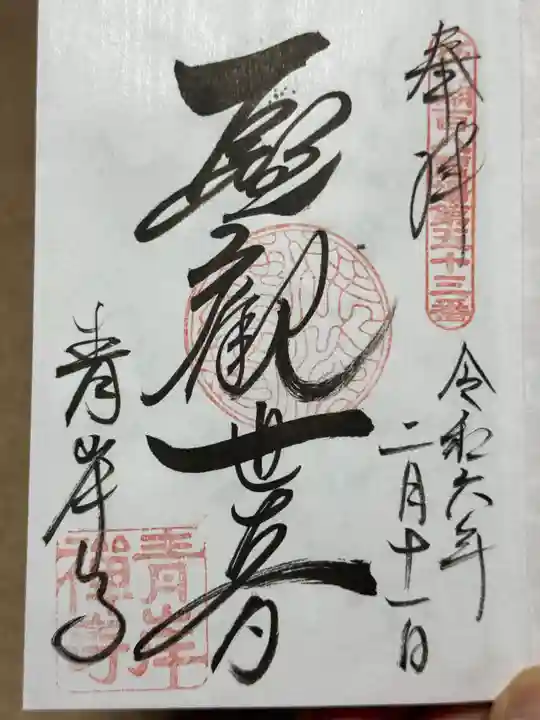 奉拝
第五十三番
令和六年
二月十一日
聖観世音
青岸寺
青岸
禅寺